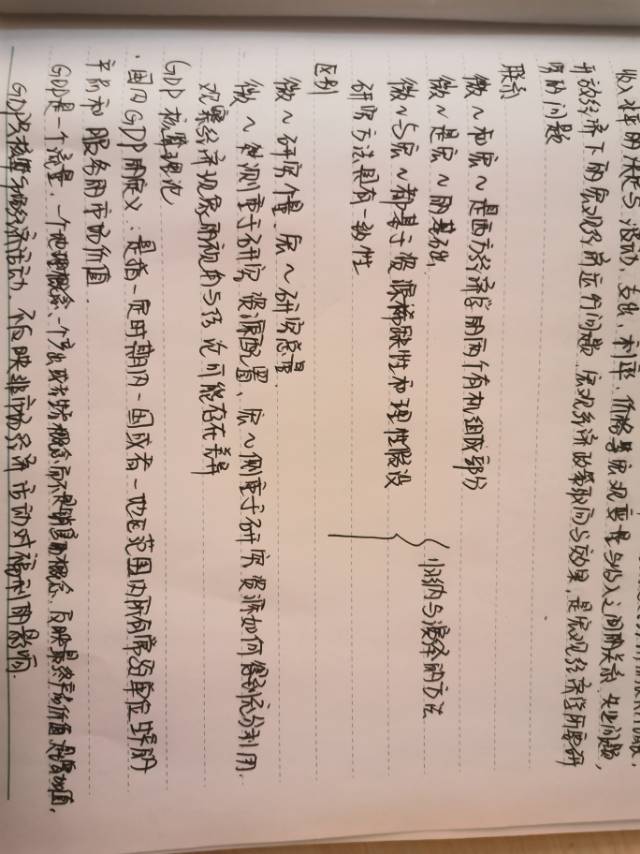 收入水平的决定与波动、支出、利率、价格等宏观变量与收入之间的关系、失业问题,
开放经济下的宏观经济运行问题、宏观经济政策取向与效果,是宏观经济学所要研
究的问题
联系
微~和宏~是西方经济学的两个有机组成部分
微~是宏~的基础
微~与宏~都基于资源稀缺性和理性假设
研究方法具有一致性
归纳与演绎的方法
区别
微~研究个量,宏~研究总量.
微~侧重于研究资源配置,宏~侧重于研究资源如何得到充分利用.
观察经济现象的视角与结论可能存在差异
GDP核算理论
·国内GDP的定义:是指一定时期内一国或者一地区范围内所有常住单位生产的
产品和服务的市场价值.
GDP是一个流量、一个地理概念、一个产出或者生产概念而不是销售的概念,反映最终产品价值
GDP只核算市场经济活动,不反映非市场经济活动对福利的影响.